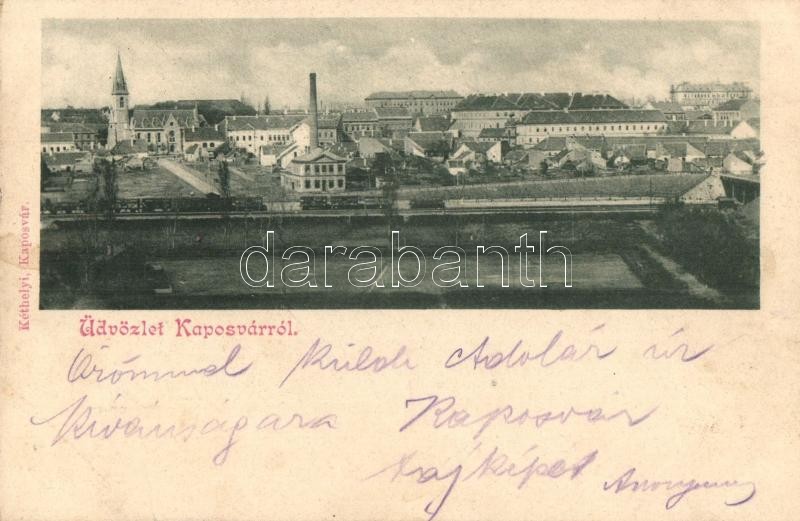 darabanth
Kéthelyi, Kaposvár.
Üdvözlet Kaposvárról.
Örömmel küldi Adolár úr
Kivánságara Kaposvár
tajképét Anonymus